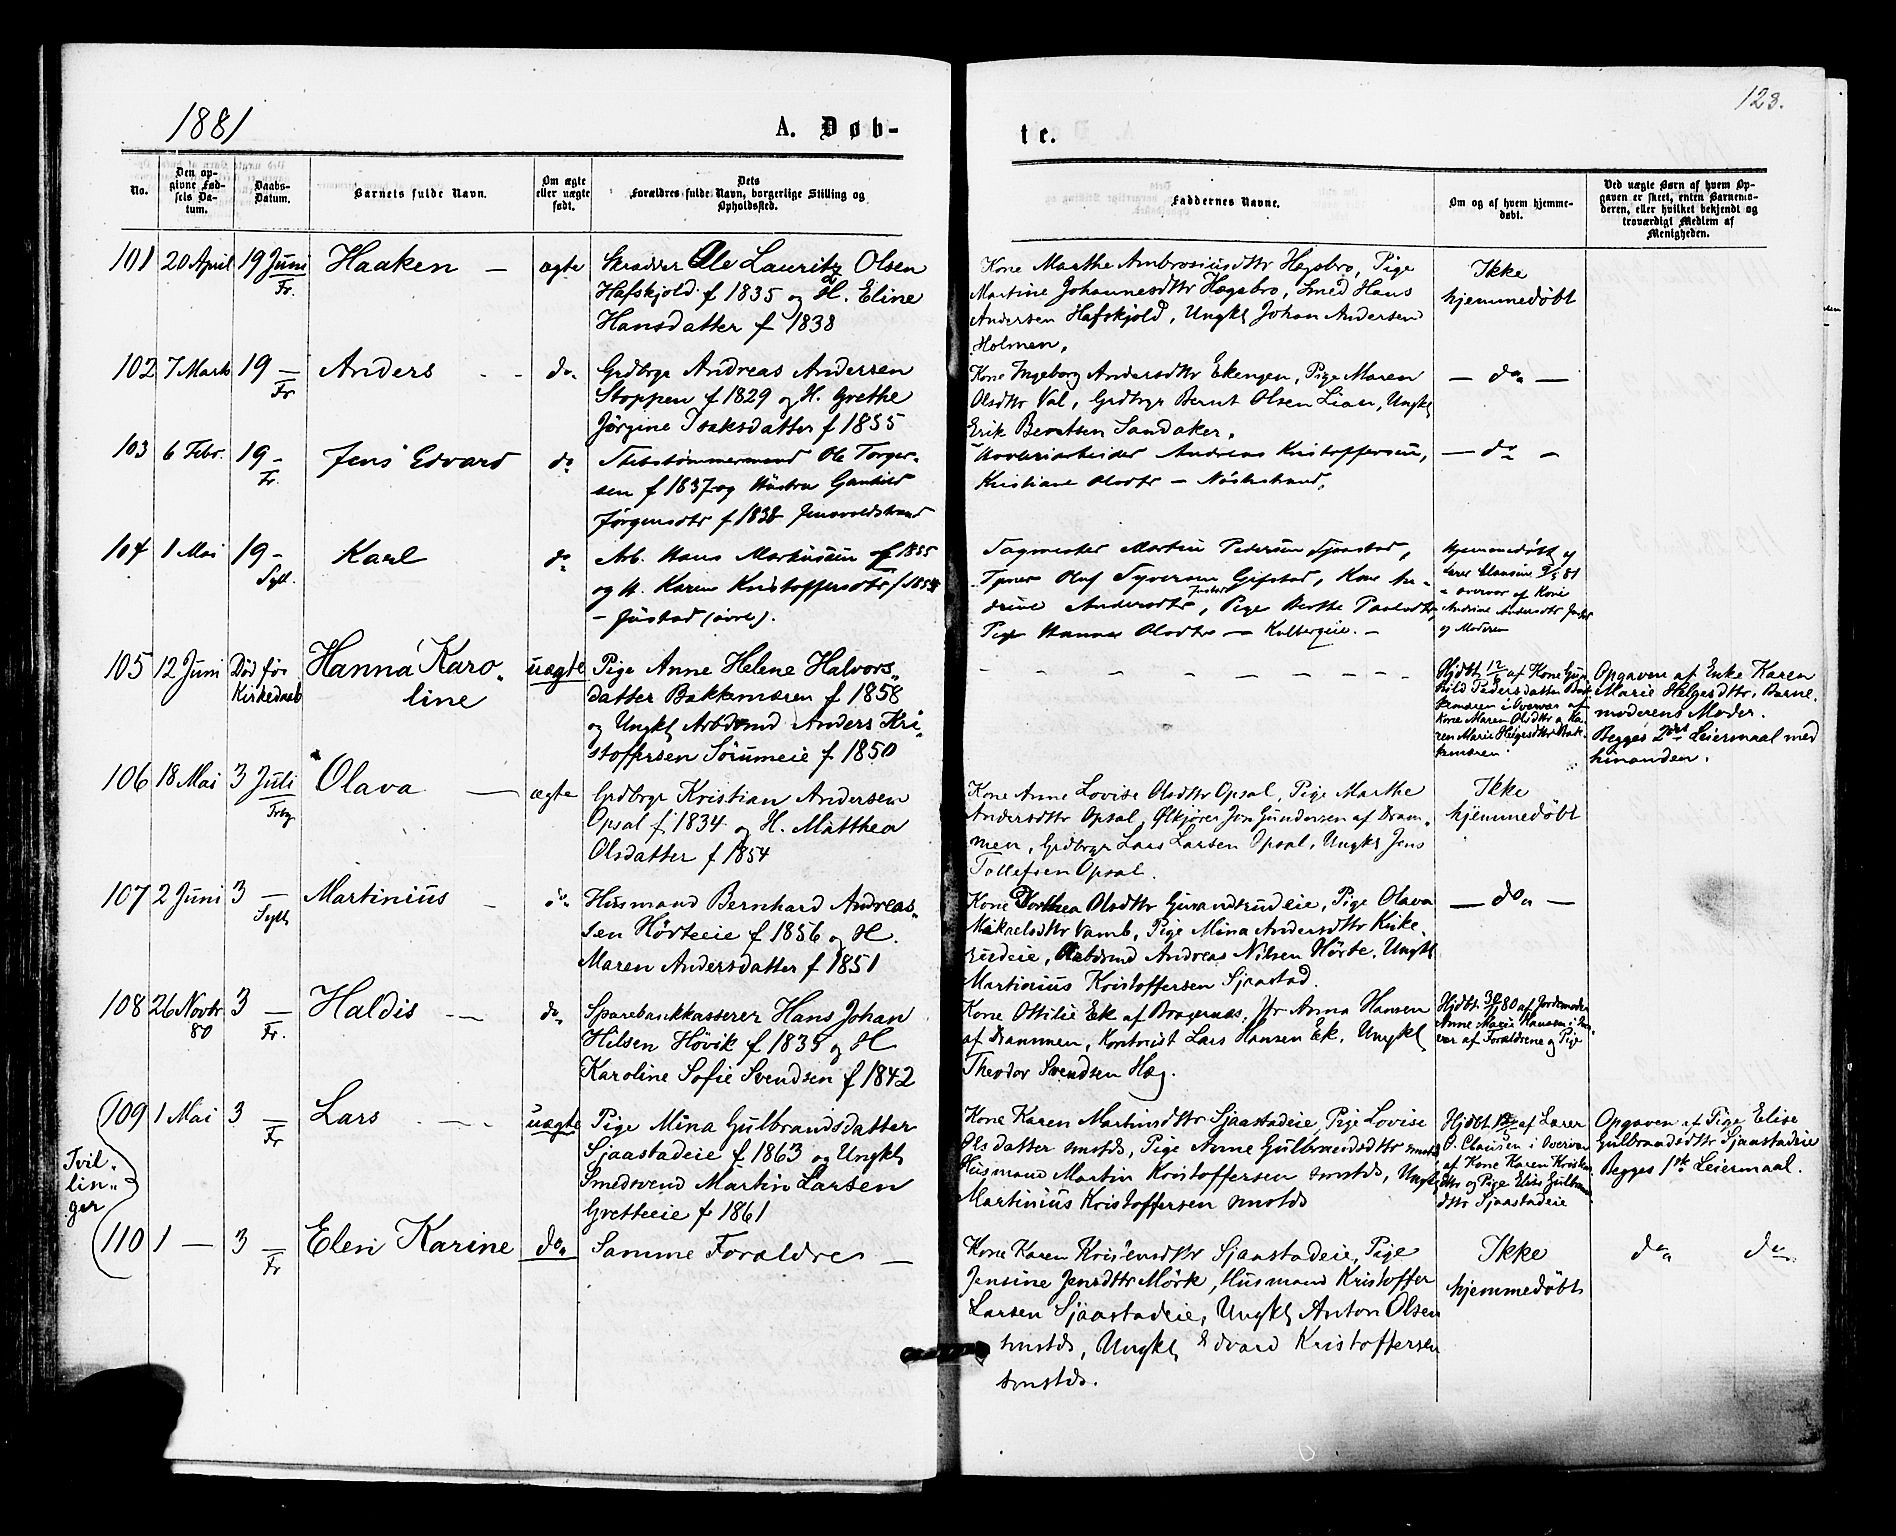 1881
A. Døb-
te.
123.
No.
Den op-
givne Fød-
sels Da-
tum.
Daabs-
Datum.
Barnets fulde Navn.
Om ægte
eller uægte
født.
Dets
Forældres fulde Navn, borgerlige Stilling og
Opholdssted.
Faddernes Navne.
Om og af hvem hjemme-
døbt.
Ved uægte Børn af hvem Op-
gaven er skeet, enten Barnemo-
deren, eller hvilket bekjendt og
troværdigt Medlem af
Menigheden.
101 20 April 19 Juni Fr. Haaken — ægte
Skrædder Ole Lauritz Olsen
Hafskjold f 1835 og H. Eline
Hansdatter f 1838
Kone Marthe Ambrosiusdtr Hegsbro, Pige
Martine Johannesdtr Hægsbro, Smed Hans
Andersen Hafskjold, Ungkl Johan Andersen
Holmen.
Ikke
hjemmedøbt
102 7 Marts 19 — Fr Anders - - do.
Grdbrgr Andreas Andersen
Stoppen f 1829 og H. Grethe
Jørgine Isaksdatter f 1835
Kone Ingeborg Andersdtr Ekengen, Pige Maren
Olsdtr Val, Grdbrgr Bernt Olsen Lian, Ungkl
Erik Berntsen Sandaker.
— do. —
103 6 Febr. 19 - Fr. Jens Edvard do
Skibstømmermand Ole Torger-
sen f 1837 og Hustru Gunhild
Jørgensdtr f 1838
Andreas Kristoffersen,
Kristiane Olsdtr —
— do —
104 1 Mai 19 - Sytl. Karl do
Arb. Hans Markussen f 1855
og H. Karen Kristoffersdtr f 1854
— Justad (øvre).
Sagmester Martin Pedersen Sjaastad,
Olaf Syversen Gifstad, Kone An-
drine Andersdtr Justad, Pige Berthe Paulsdtr,
Pige Hanna Olsdtr —
Hjemmedøbt af
Lærer Clausen
i overvær af Kone
Andrine Andersdtr Justad
og Moderen
105 12 Juni Død før
Kirkedaab
Hanna Karo-
line
uægte
Pige Anne Helene Halvors-
datter Bakkemæren f 1858
og Ungkl Arbdsmd Anders Kri-
stoffersen Sørumeie f 1850
- — — — — — - -
Hjdbt 12/6 af Kone Gun-
hild Pedersdatter Bak-
kemæren i Overvær af
Kone Maren Olsdtr og Ka-
ren Marie Helgesdtr Bak-
kemæren
Opgaven af Enke Karen
Marie Helgesdtr, Barne-
moderens Moder.
Begges 2det Leiermaal med
hinanden.
106 18 Mai 3 Juli Frbg Olava — ægte
Grdbrgr Kristian Andersen
Opsal f 1834 og H. Matthea
Olsdatter f 1854
Kone Anne Lovise Olsdtr Opsal, Pige Marthe
Andersdtr Opsal, Ølkjører Jon Gundersen af Dram-
men, Grdbrgr Lars Larsen Opsal, Ungkl Jens
Tollefsen Opsal.
Ikke
hjemmedøbt
107 2 Juni 3 — Sytl Martinius - do.
Husmand Bernhard Andreas-
sen Hörteeie f 1856 og H.
Maren Andersdatter f 1851
Kone Dorthea Olsdtr Gunandrudeie, Pige Olava
Mikaelsdtr Vamb, Pige Mina Andersdtr Kirke-
rudeie, Arbdsmd Andreas Nilsen Hörte, Ungkl
Martinius Kristoffersen Sjaastad.
— do. —
108 26 Novbr
80 3 — Fr. Haldis — do.
Sparebankkasserer Hans Johan
Hilsen Hövik f 1835 og H
Karoline Sofie Svendsen f 1842
Kone Ottilie Ek af Bragernæs, Jfr Anna Hansen
af Drammen, Kontorist Lars Hansen Ek, Ungkl
Theodor Svendsen Hæg.
Hjdbt 80 af Jordemoder
Anne Marie Hansen i Over-
vær af Forældrene og Pige
Tvil-
lin-
ger
109 1 Mai 3 — Fr Lars - — - uægte
Pige Mina Gulbrandsdatter
Sjaastadeie f 1863 og Ungkl
Smedsvend Martin Larsen
Gretteeie f 1861
Kone Karen Martinsdtr Sjaastadeie, Pige Lovise
Olsdatter smstds, Pige Anne Gulbrandsdtr smstds,
Husmand Martin Kristoffersen smstds, Ungkl
Martinius Kristoffersen smstds
Hjdbt af Lærer
O. Clausen i Overvær
af Kone Karen Kristen-
dtr og Pige Elise Gulbrands-
dtr Sjaastadeie
Opgaven af Pige Elise
Gulbrandsdtr Sjaastadeie
Begges 1ste Leiermaal.
110 1 — 3 — Fr Elen Karine do.
Samme Forældre —
Kone Karen Kristensdtr Sjaastadeie, Pige
Jensine Jensdtr Mörk, Husmand Kristoffer
Larsen Sjaastadeie, Ungkl Anton Olsen
smstds, Ungkl Edvard Kristoffersen
smstds.
Ikke
hjemmedøbt
do. do.